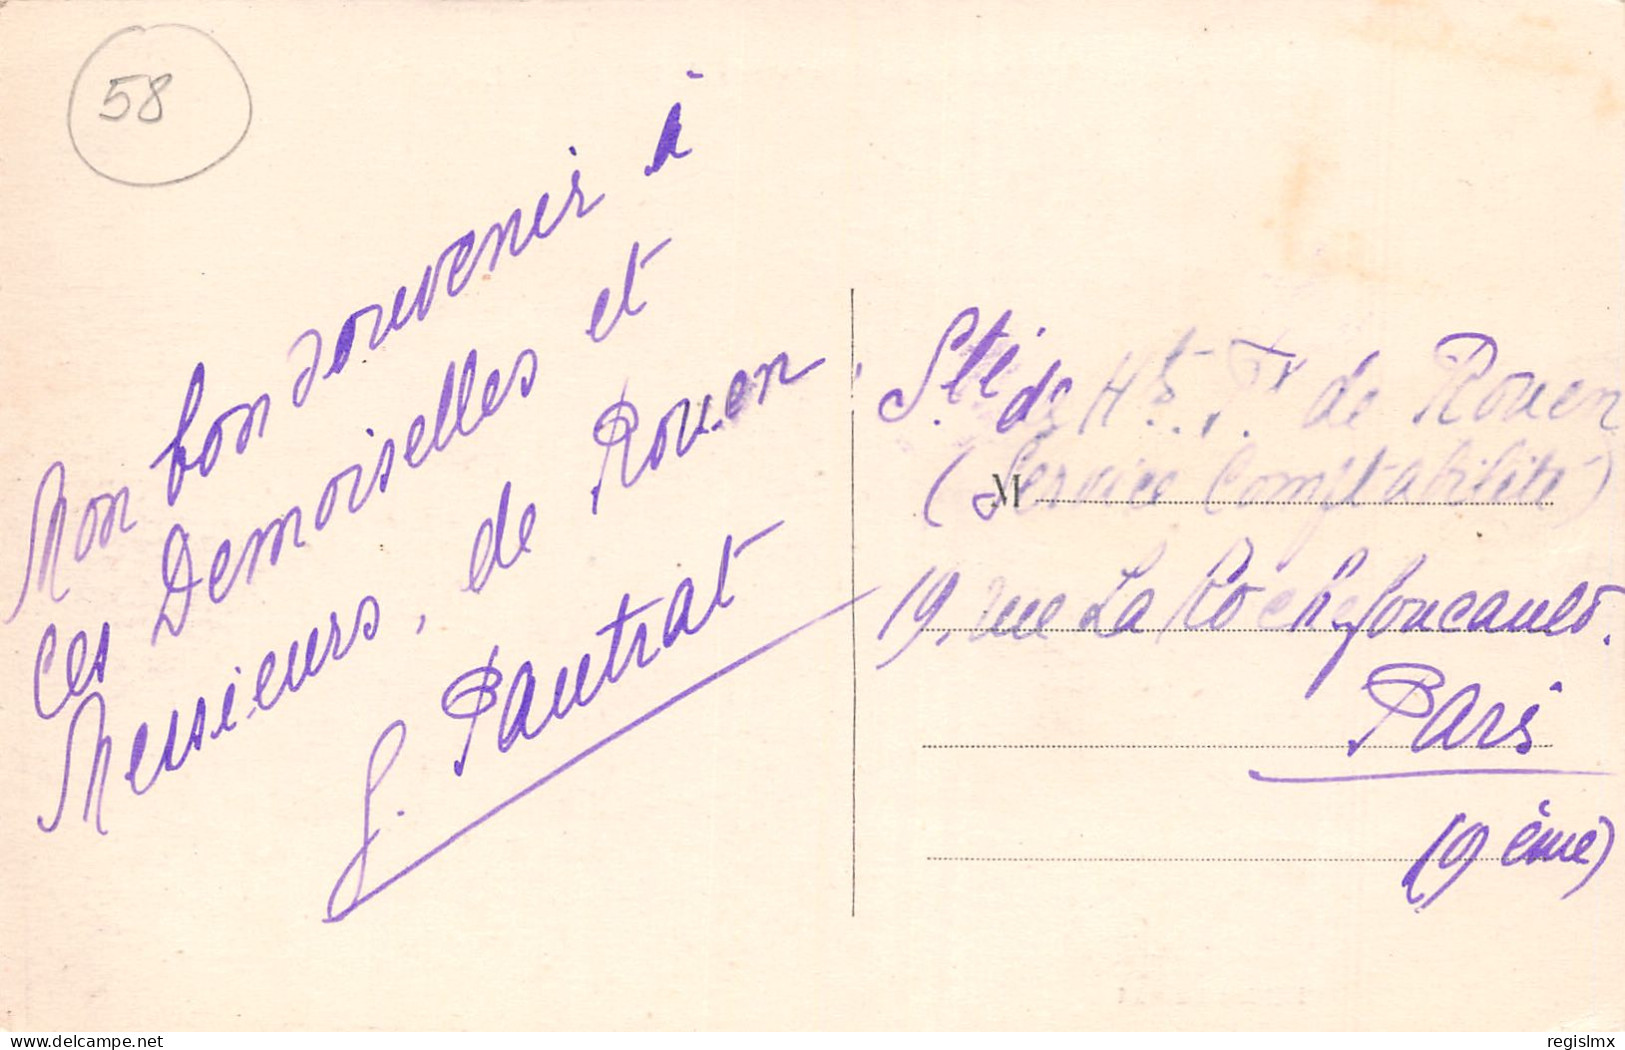 58
Mon bon souvenir à
Ces Demoiselles et
Messieurs, de Rouen.
G. Pautrat
Sté de Hts. Fx de Rouen
(Service Comptabilité)
M
19, rue La Rochefoucauld.
Paris
(9 ème)
delcampe.net
regislmx